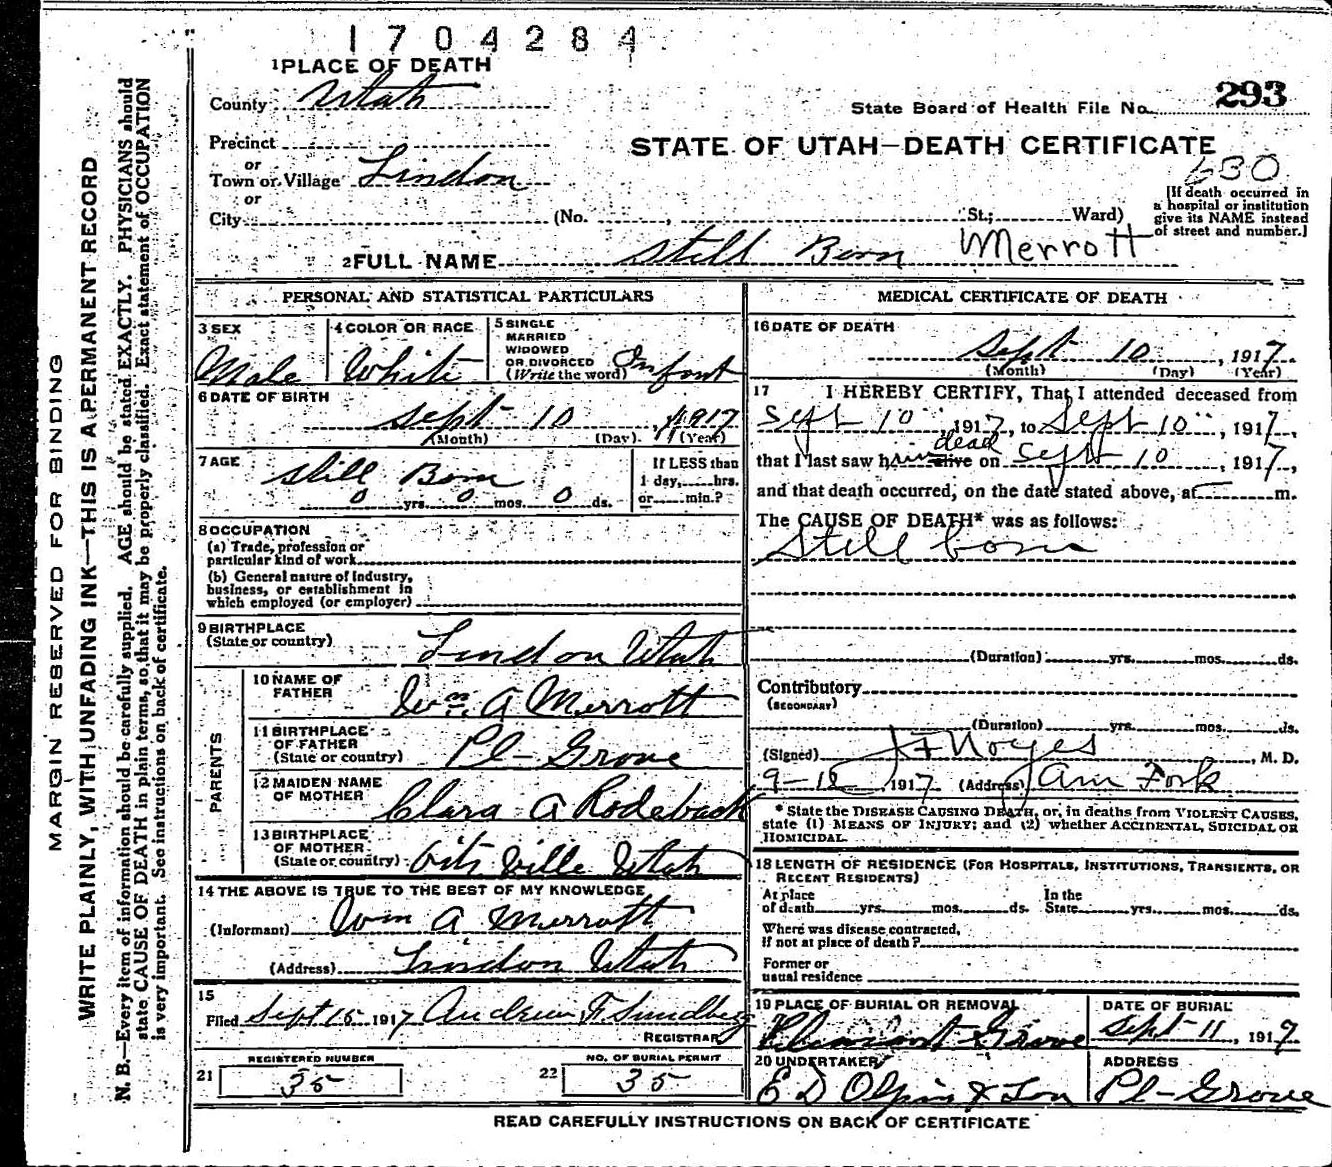 1704284
1 PLACE OF DEATH
County Utah
State Board of Health File No. 293
Precinct
or
Town or Village Lindon
or
City (No. , St.; Ward)
STATE OF UTAH—DEATH CERTIFICATE
630
[If death occurred in
a hospital or institution
give its NAME instead
of street and number.]
2 FULL NAME Still Born Merrott
PERSONAL AND STATISTICAL PARTICULARS
3 SEX
Male
4 COLOR OR RACE
White
5 SINGLE
MARRIED
WIDOWED
OR DIVORCED
(Write the word) Infant
6 DATE OF BIRTH
Sept 10, 1917
(Month) (Day) (Year)
7 AGE
Still Born
0 yrs. 0 mos. 0 ds.
If LESS than
1 day,......hrs.
or......min.?
8 OCCUPATION
(a) Trade, profession or
particular kind of work
(b) General nature of Industry,
business, or establishment in
which employed (or employer)
9 BIRTHPLACE
(State or country) Lindon Utah
PARENTS
10 NAME OF
FATHER Wm. A Merrott
11 BIRTHPLACE
OF FATHER
(State or country) Pl- Grove
12 MAIDEN NAME
OF MOTHER Clara A Rodeback
13 BIRTHPLACE
OF MOTHER
(State or country) Ville Utah
14 THE ABOVE IS TRUE TO THE BEST OF MY KNOWLEDGE
(Informant) Wm A Merrott
(Address) Lindon Utah
15
Filed Sept 15 1917 Andrew F. Sundberg
REGISTRAR
REGISTERED NUMBER
21 35
NO. OF BURIAL PERMIT
22 35
MEDICAL CERTIFICATE OF DEATH
16 DATE OF DEATH
Sept 10, 1917
(Month) (Day) (Year)
17 I HEREBY CERTIFY, That I attended deceased from
Sept 10", 1917, to Sept 10", 1917,
dead
that I last saw him alive on Sept 10, 1917,
and that death occurred, on the date stated above, at m.
The CAUSE OF DEATH* was as follows:
Still born
(Duration) yrs. mos. ds.
Contributory
(SECONDARY)
(Duration) yrs. mos. ds.
(Signed) Noyes, M. D.
1917 (Address) Am Fork
* State the DISEASE CAUSING DEATH, or, in deaths from VIOLENT CAUSES,
state (1) MEANS OF INJURY; and (2) whether ACCIDENTAL, SUICIDAL OR
HOMICIDAL.
18 LENGTH OF RESIDENCE (FOR HOSPITALS, INSTITUTIONS, TRANSIENTS, OR
RECENT RESIDENTS)
At place
of death yrs. mos. ds.
In the
State yrs. mos. ds.
Where was disease contracted,
if not at place of death?
Former or
usual residence
19 PLACE OF BURIAL OR REMOVAL
Pleasant Grove
DATE OF BURIAL
Sept 11, 1917
20 UNDERTAKER
E D Olpin & Son
ADDRESS
Pl- Grove
READ CAREFULLY INSTRUCTIONS ON BACK OF CERTIFICATE
MARGIN RESERVED FOR BINDING
WRITE PLAINLY, WITH UNFADING INK—THIS IS A PERMANENT RECORD
N. B.—Every item of information should be carefully supplied. AGE should be stated EXACTLY. PHYSICIANS should
state CAUSE OF DEATH in plain terms, so that it may be properly classified. Exact statement of OCCUPATION
is very important. See instructions on back of certificate.